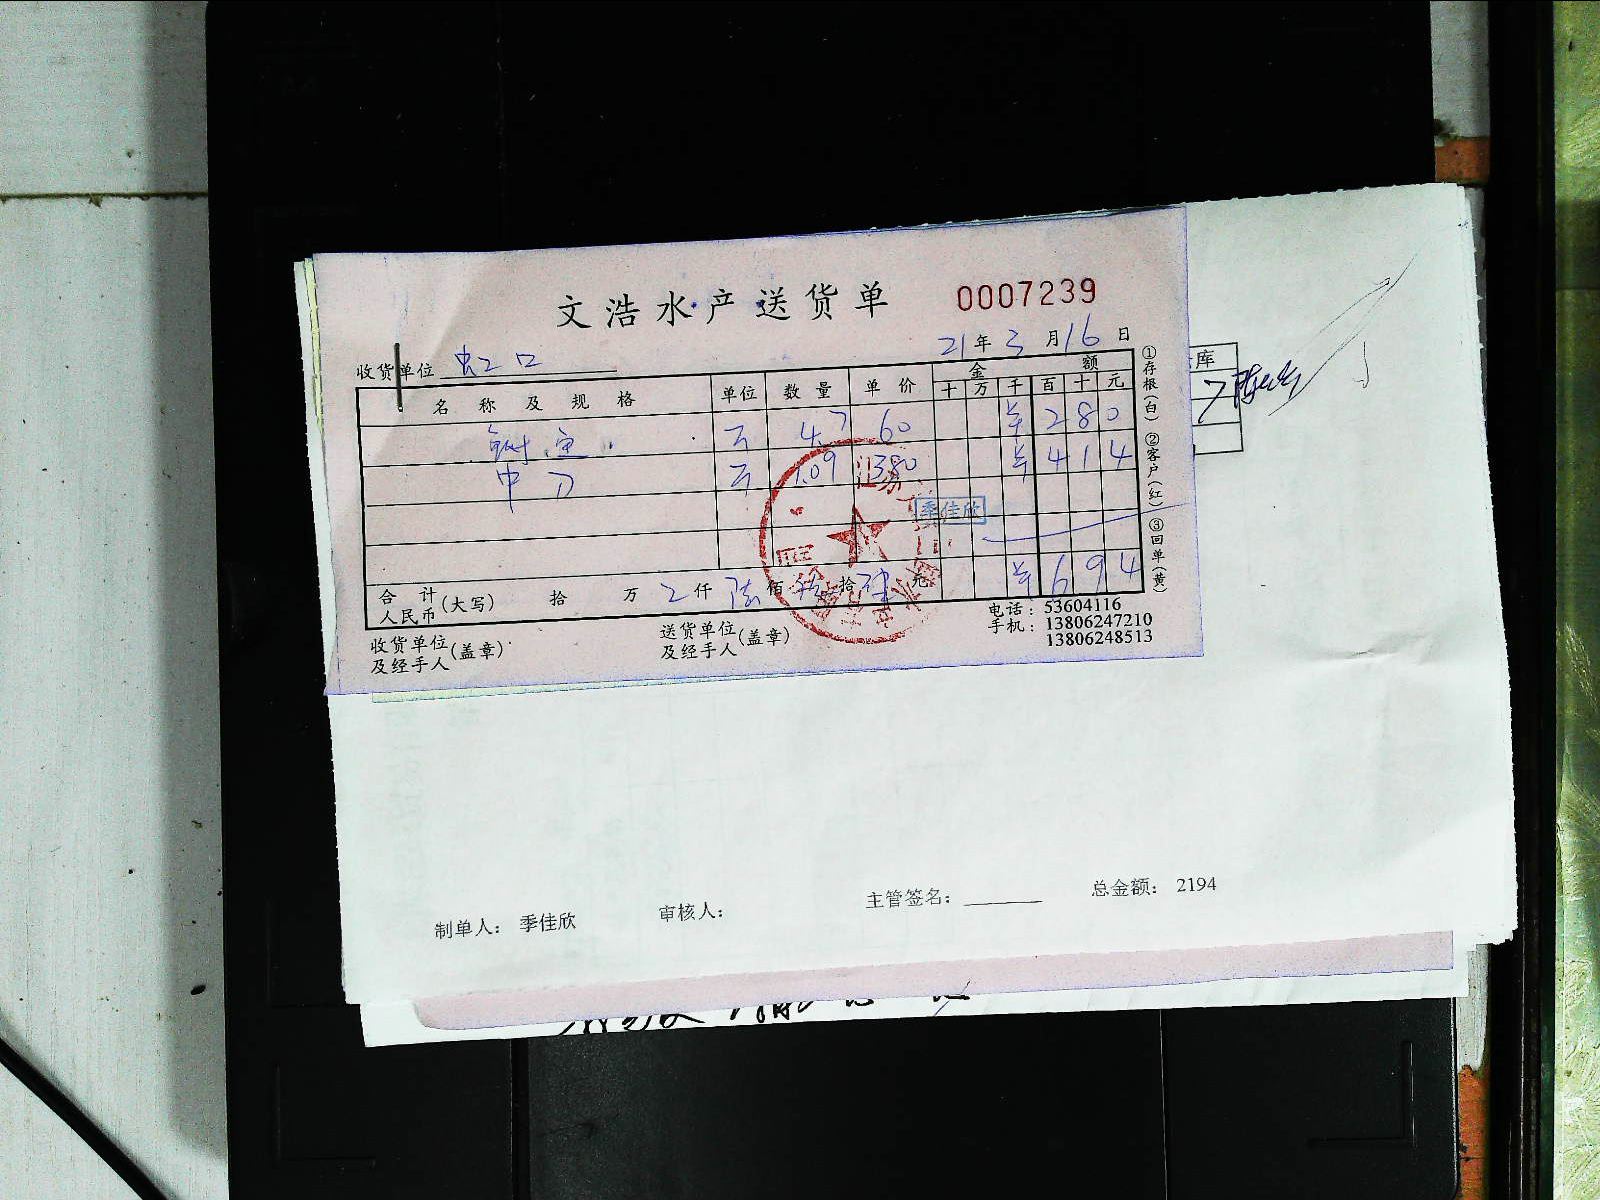 文浩水产送货单 0007239
21年3月16日
收货单位 虹口
名称及规格 单位 数量 单价 金额
十 万 千 百 十 元
鲥鱼 斤 4.7 60 ¥ 2 8 0
中刀 斤 1.09 380 ¥ 4 1 4
季佳欣
合计人民币(大写) 拾 万 仟 陆 佰 拾 元 ¥ 6 9 4
①存根(白) ②客户(红) ③回单(黄)
收货单位及经手人(盖章)
送货单位及经手人(盖章)
电话:53604116
手机:13806247210
13806248513
库
制单人: 季佳欣 审核人: 主管签名: 总金额: 2194